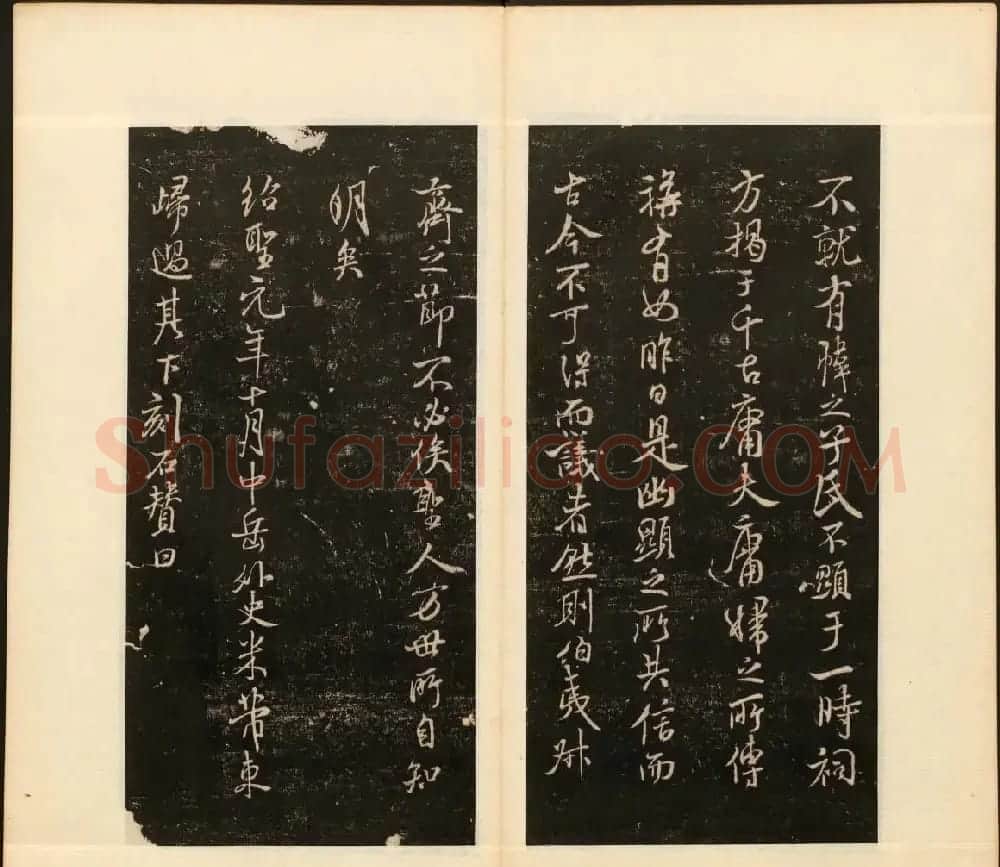 不就有幃之子民不顯于一時祠
方揭于千古庸夫庸婦之所傳
如昨日是幽顯之所共信而
古今不可得而議者然則伯夷叔
齊之節不必俟聖人方毋所自知
明矣
紹聖元年十月中岳外史米芾東
歸過其下刻石贊曰
Shufaziliao.COM